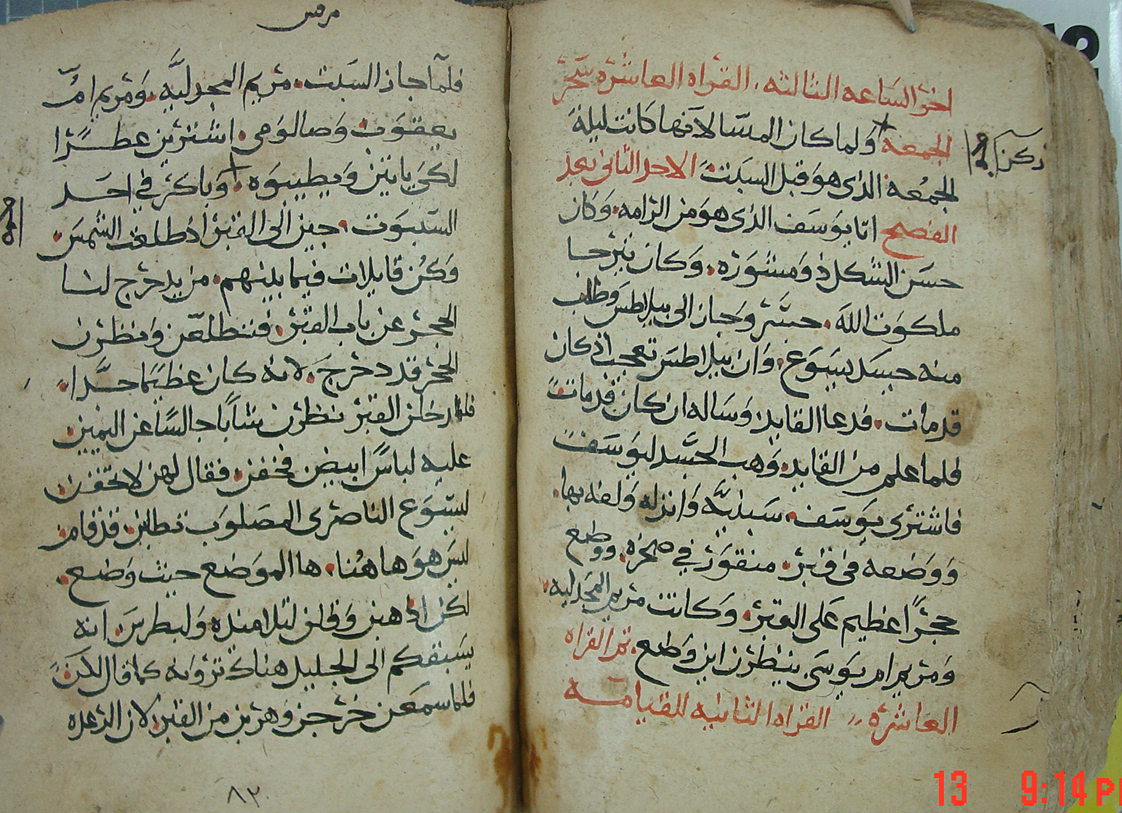 اخرۃ الساعه الثالثه . القراه العاشره سحَر
الجمعه ولما كان المسّا لانها كانت ليلة
الجمُعة الذى هو قبل السبت الاحد الثانى بعد
الفصح اتا يوسف الذى هو من الرامه . وكان
حسن الشكل ذو مشوره . وكان يترجا
ملكوت الله . جسَر وجا الى بيلاطس وطلب
منه جسد يسوع . وان بيلاطس تعجب اذ كان
قد مات . فدعا القايد وساله ان كان قد مات
فلما علم من القايد . وهب الجسد ليوسف
فاشترى يوسف . سبنيَّه وانزله ولفه بها .
ووضعه فى قبر . منقور في صخره . ووضع
حجرًا عظيم على القبر . وكانت مريم المجدليه .
ومريم ام يوسى ينظرن اين وضع . تم القراه
العاشره القراه الثانيه للقيامه
ذكرن
مرقس
فلما جاز السبت . مريم المجدليَّه . ومريم امّ
يعقوب وصالومى . اشترين عطرًا
لكى ياتين ويطيبوه . وباكر في احد
السبوت . جين الى القبر اذ طلعت الشمس .
وكن قايلات فيما بينهم . من يدحرج لنا
الحجر عن باب القبر . فتطلعن ونظرن
الحجر قد دحرج . لانه كان عظيمًا جدًا .
فلما دخلن القبر نظرن شابًا جالسًا عن اليمين .
عليه لباسً ابيض فخفن . فقال لهن لا تخفن .
ليسوع الناصرى المصلوب تطلبن . قد قام .
ليس هو هاهُنا . ها الموضع حيث وضع .
لكن اذهبن وقلن لتلاميذه ولبطرس . انه
يسبقكم الى الجليل هناك ترونه كما قال لكن .
فلما سمعن خرجن وهربن من القبر . لان الرعده
٨٢
13 9:14 P